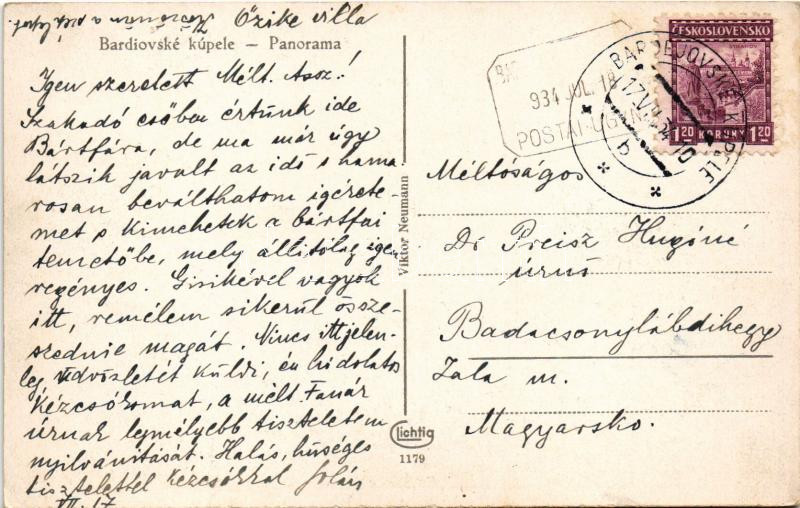 Őzike villa
Bardiovské kúpele – Panorama
Igen szeretett Mélt. Assz.!
Szakadó esőben értünk ide
Bártfára, de ma már úgy
látszik javult az idő s hama
rosan beválthatom igérete-
met s kimehetek a bártfai
temetőbe, mely állitólag igen
regényes. Gizikével vagyok
itt, remélem sikerül össze-
szednie magát. Nincs itt jelen-
leg, üdvözletét küldi, én hódolatos
kézcsókomat, a mélt. Tanár
úrnak legmélyebb tiszteletem
nyilvánitását. Hálás, hűséges
tisztelettel kézcsókkal
VII. 17
Viktor Neumann
Lichtig
1179
ČESKOSLOVENSKO
1.20 KORUNY 1.20
BARDEJOVSKÉ KÚPELE
17.VII.34.10
b
934 JUL. 18
POSTAI ÜGYN.
Méltóságos
Dr Preisz Hugóné
úrnő
Badacsonylábdihegy
Zala m.
Magyarsko.